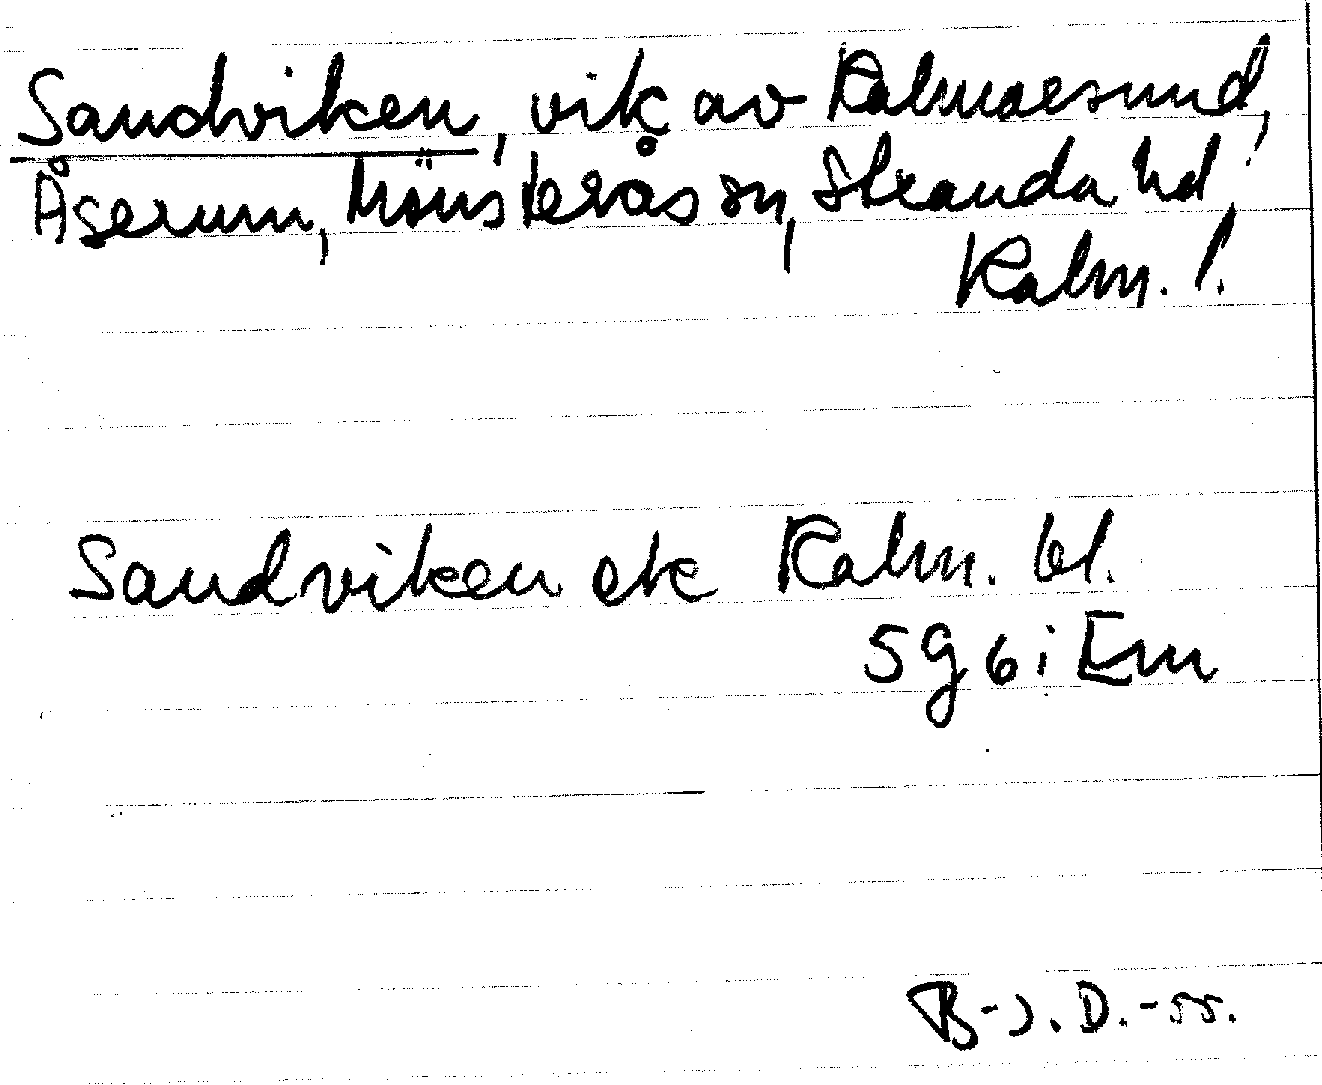 Sandviken, vik av Kalmarsund,
Åserum, Mönsterås sn, Stranda hd,
Kalm. l.
Sandviken ek Kalm. bl.
5 g 6 i Em
B-J.D.-55.